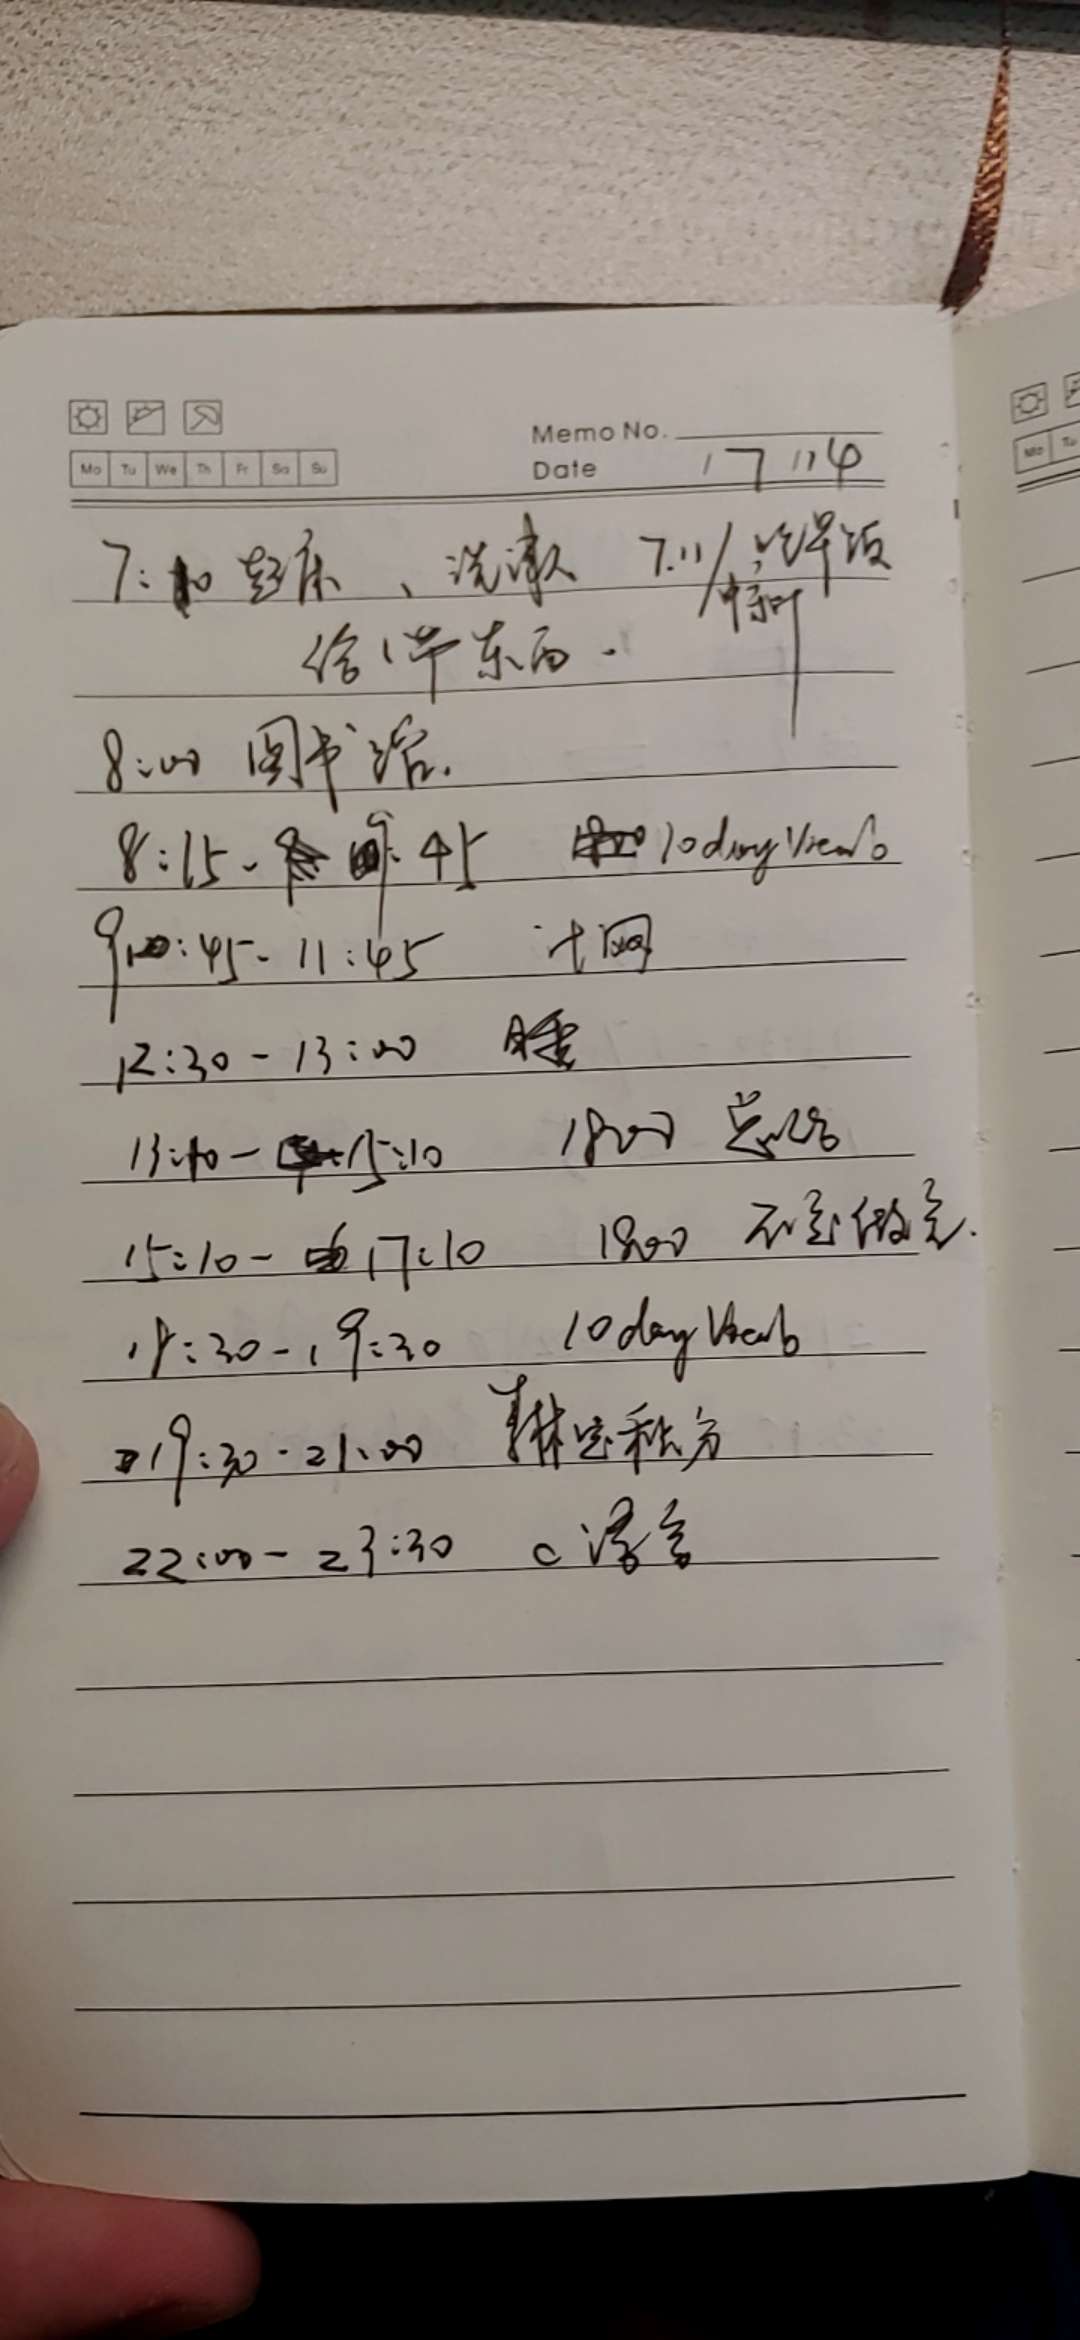 Memo No.
Mo Tu We Th Fr Sa Su
Date 17 114
7:10 起床、洗漱 7.11 吃早饭
东西.
8:00 图书馆.
8:15- :45 10day Vocab
9:45-11:45 计网
12:30-13:00 睡
13:10-15:10 1800 总结
15:10-17:10 1800 不定做完.
:30-19:30 10day Vocab
19:30-21:00
22:00-23:30 C语言
Mo Tu